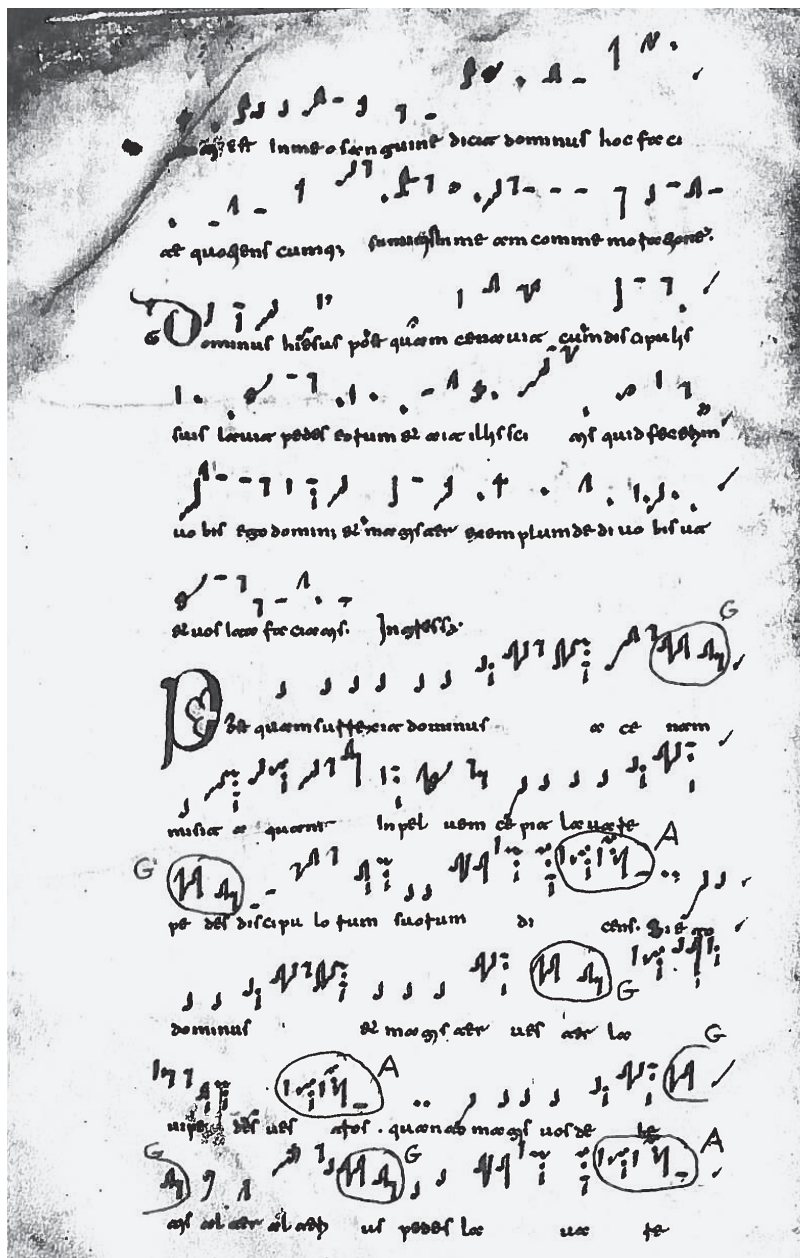 est inmeo sanguine dicit dominus hoc faci
te quotiens cumq; sumitis inme am commemorationē.
G Dominus hiesus post quam cenavit cum discipulis
suis lavit pedes eorum et ait illis sci tis quid fecerim
vo bis ego domin; et magister exemplum dedi vo bis ut
et vos ita faciatis. Ingressa.
G
Post quam surrexit dominus a ce nam
misit a quam inpel vem cepit lavare
G A
pe des discipu lo rum suorum di cens. Si ego
G
dominus et magis ter ves ter la
A G
vi pe des ves tros. quanto magis vos de be
G G A
tis al ter al ter us pedes la va re